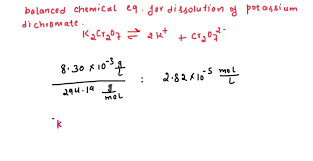 balanced chemical eq. for dissolution of potassium
dichromate.
K₂Cr₂O₇ ⇌ 2K⁺ + Cr₂O₇²⁻
8.30 × 10⁻³ g/L : 2.82 × 10⁻⁵ mol/L
294.19 g/mol
K